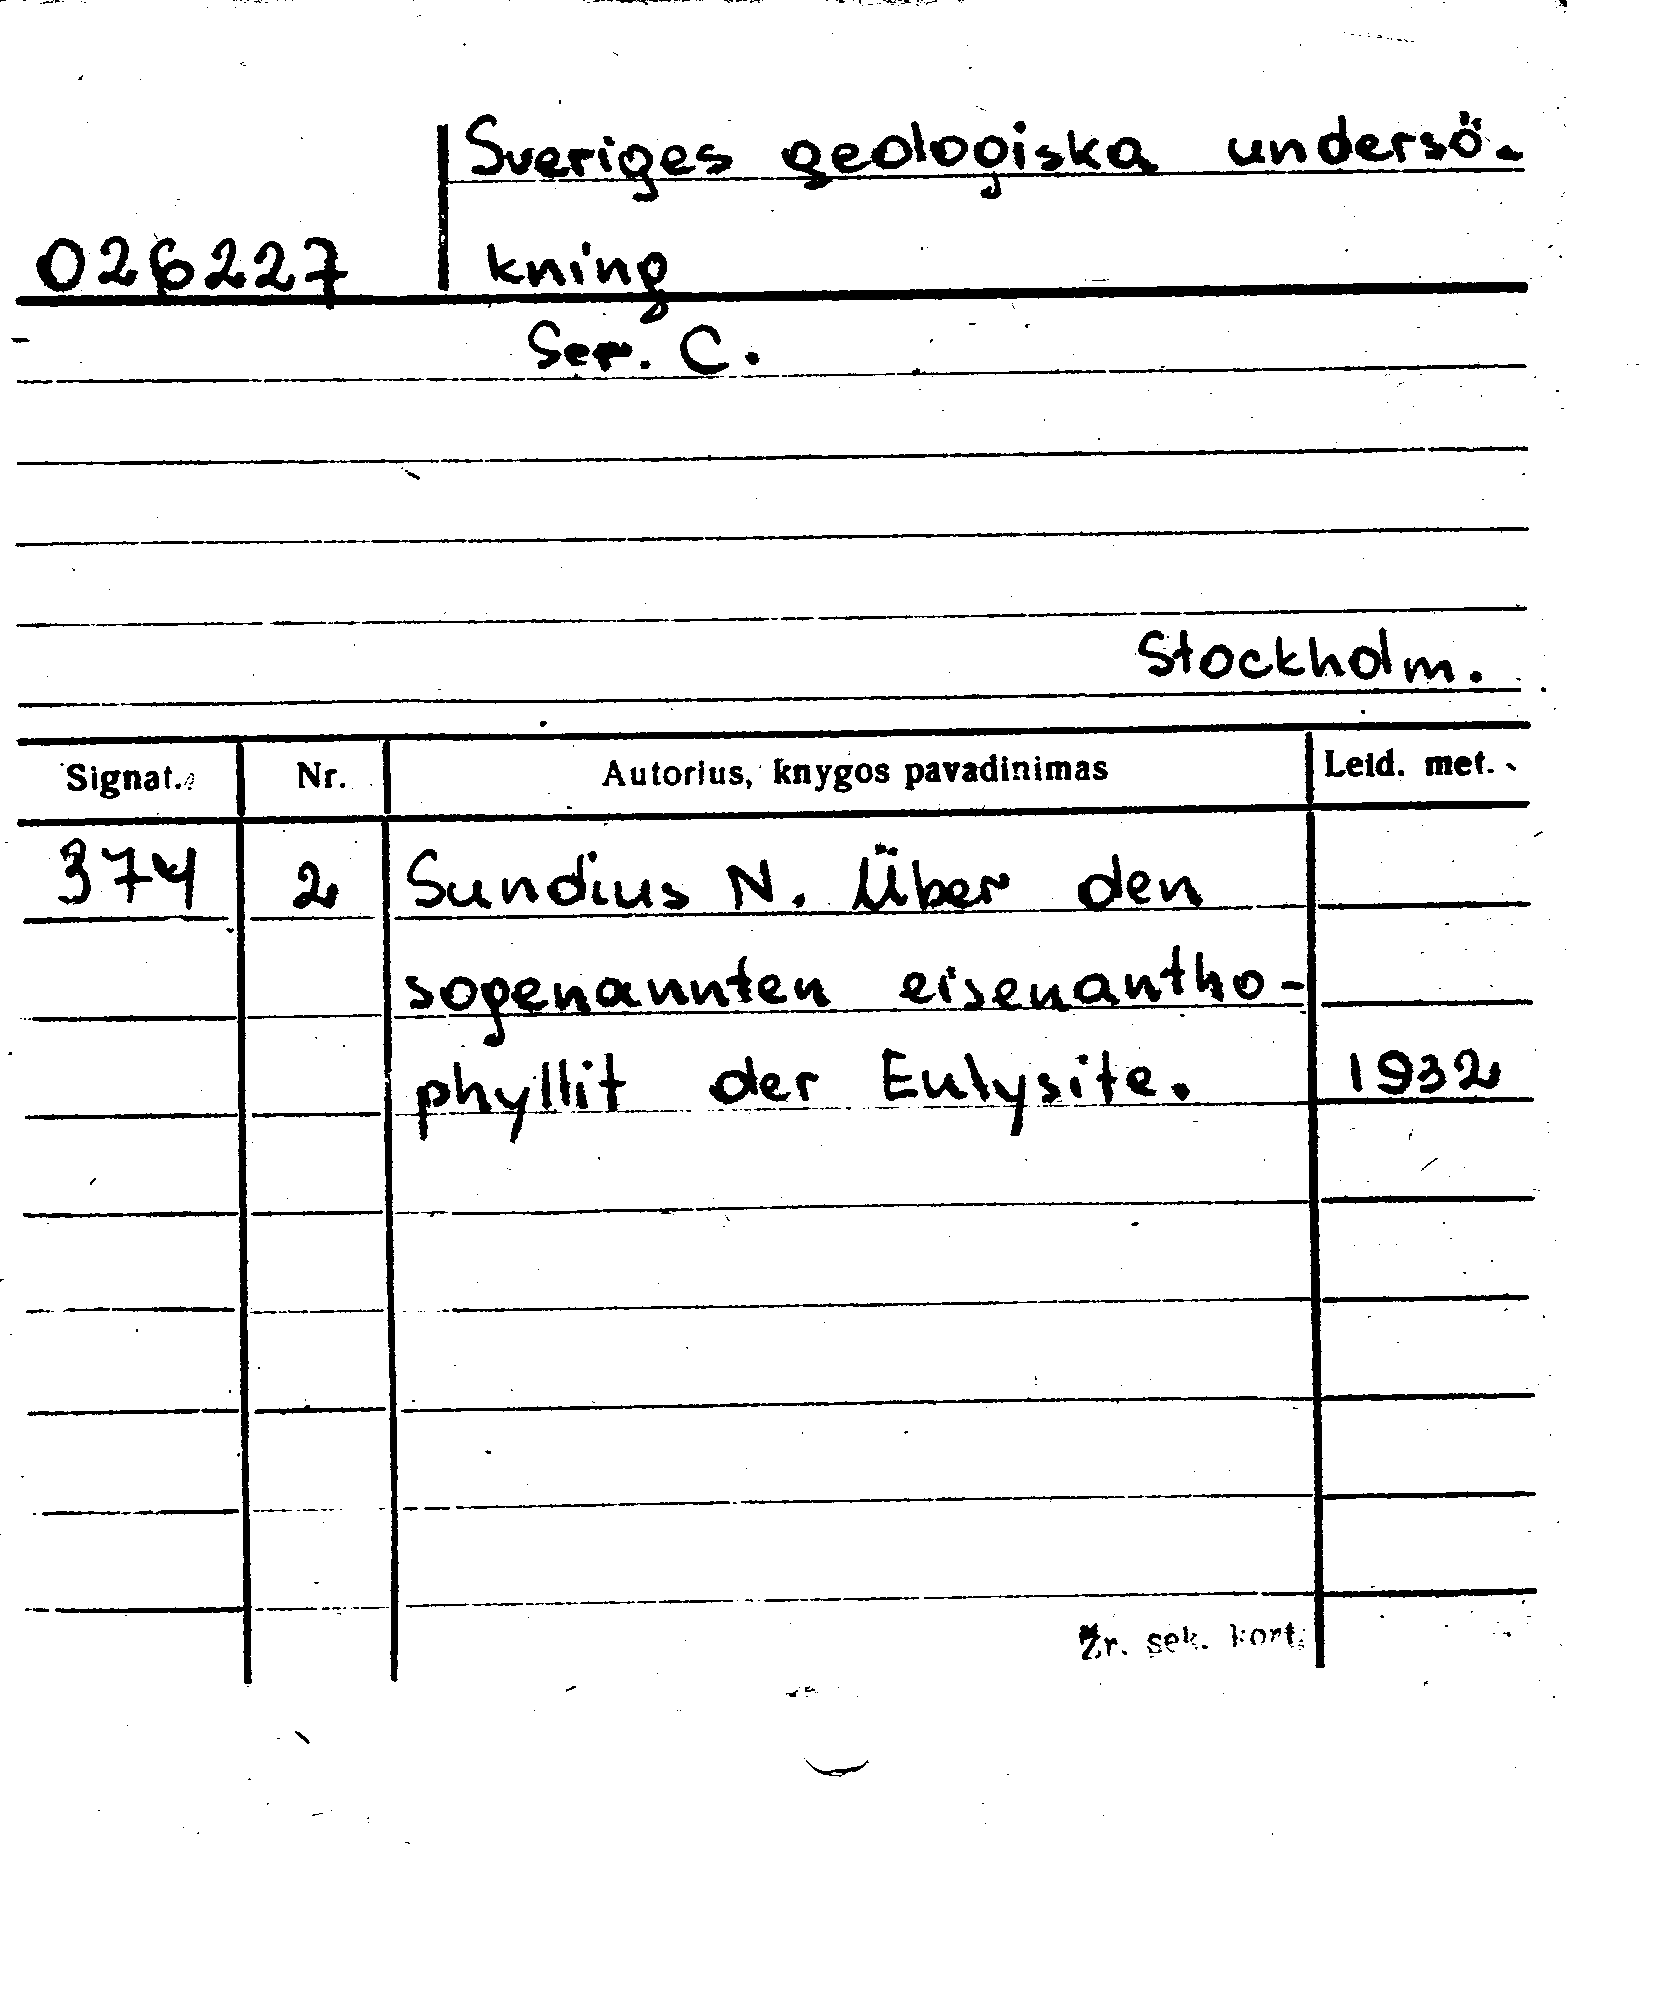 Sveriges geologiska undersö-
026227 kning
Ser. C.
Stockholm.
Signat. Nr. Autorius, knygos pavadinimas Leid. met.
374 2 Sundius N. Über den
sogenannten eisenantho-
phyllit der Eulysite. 1932
Žr. sek. kort.